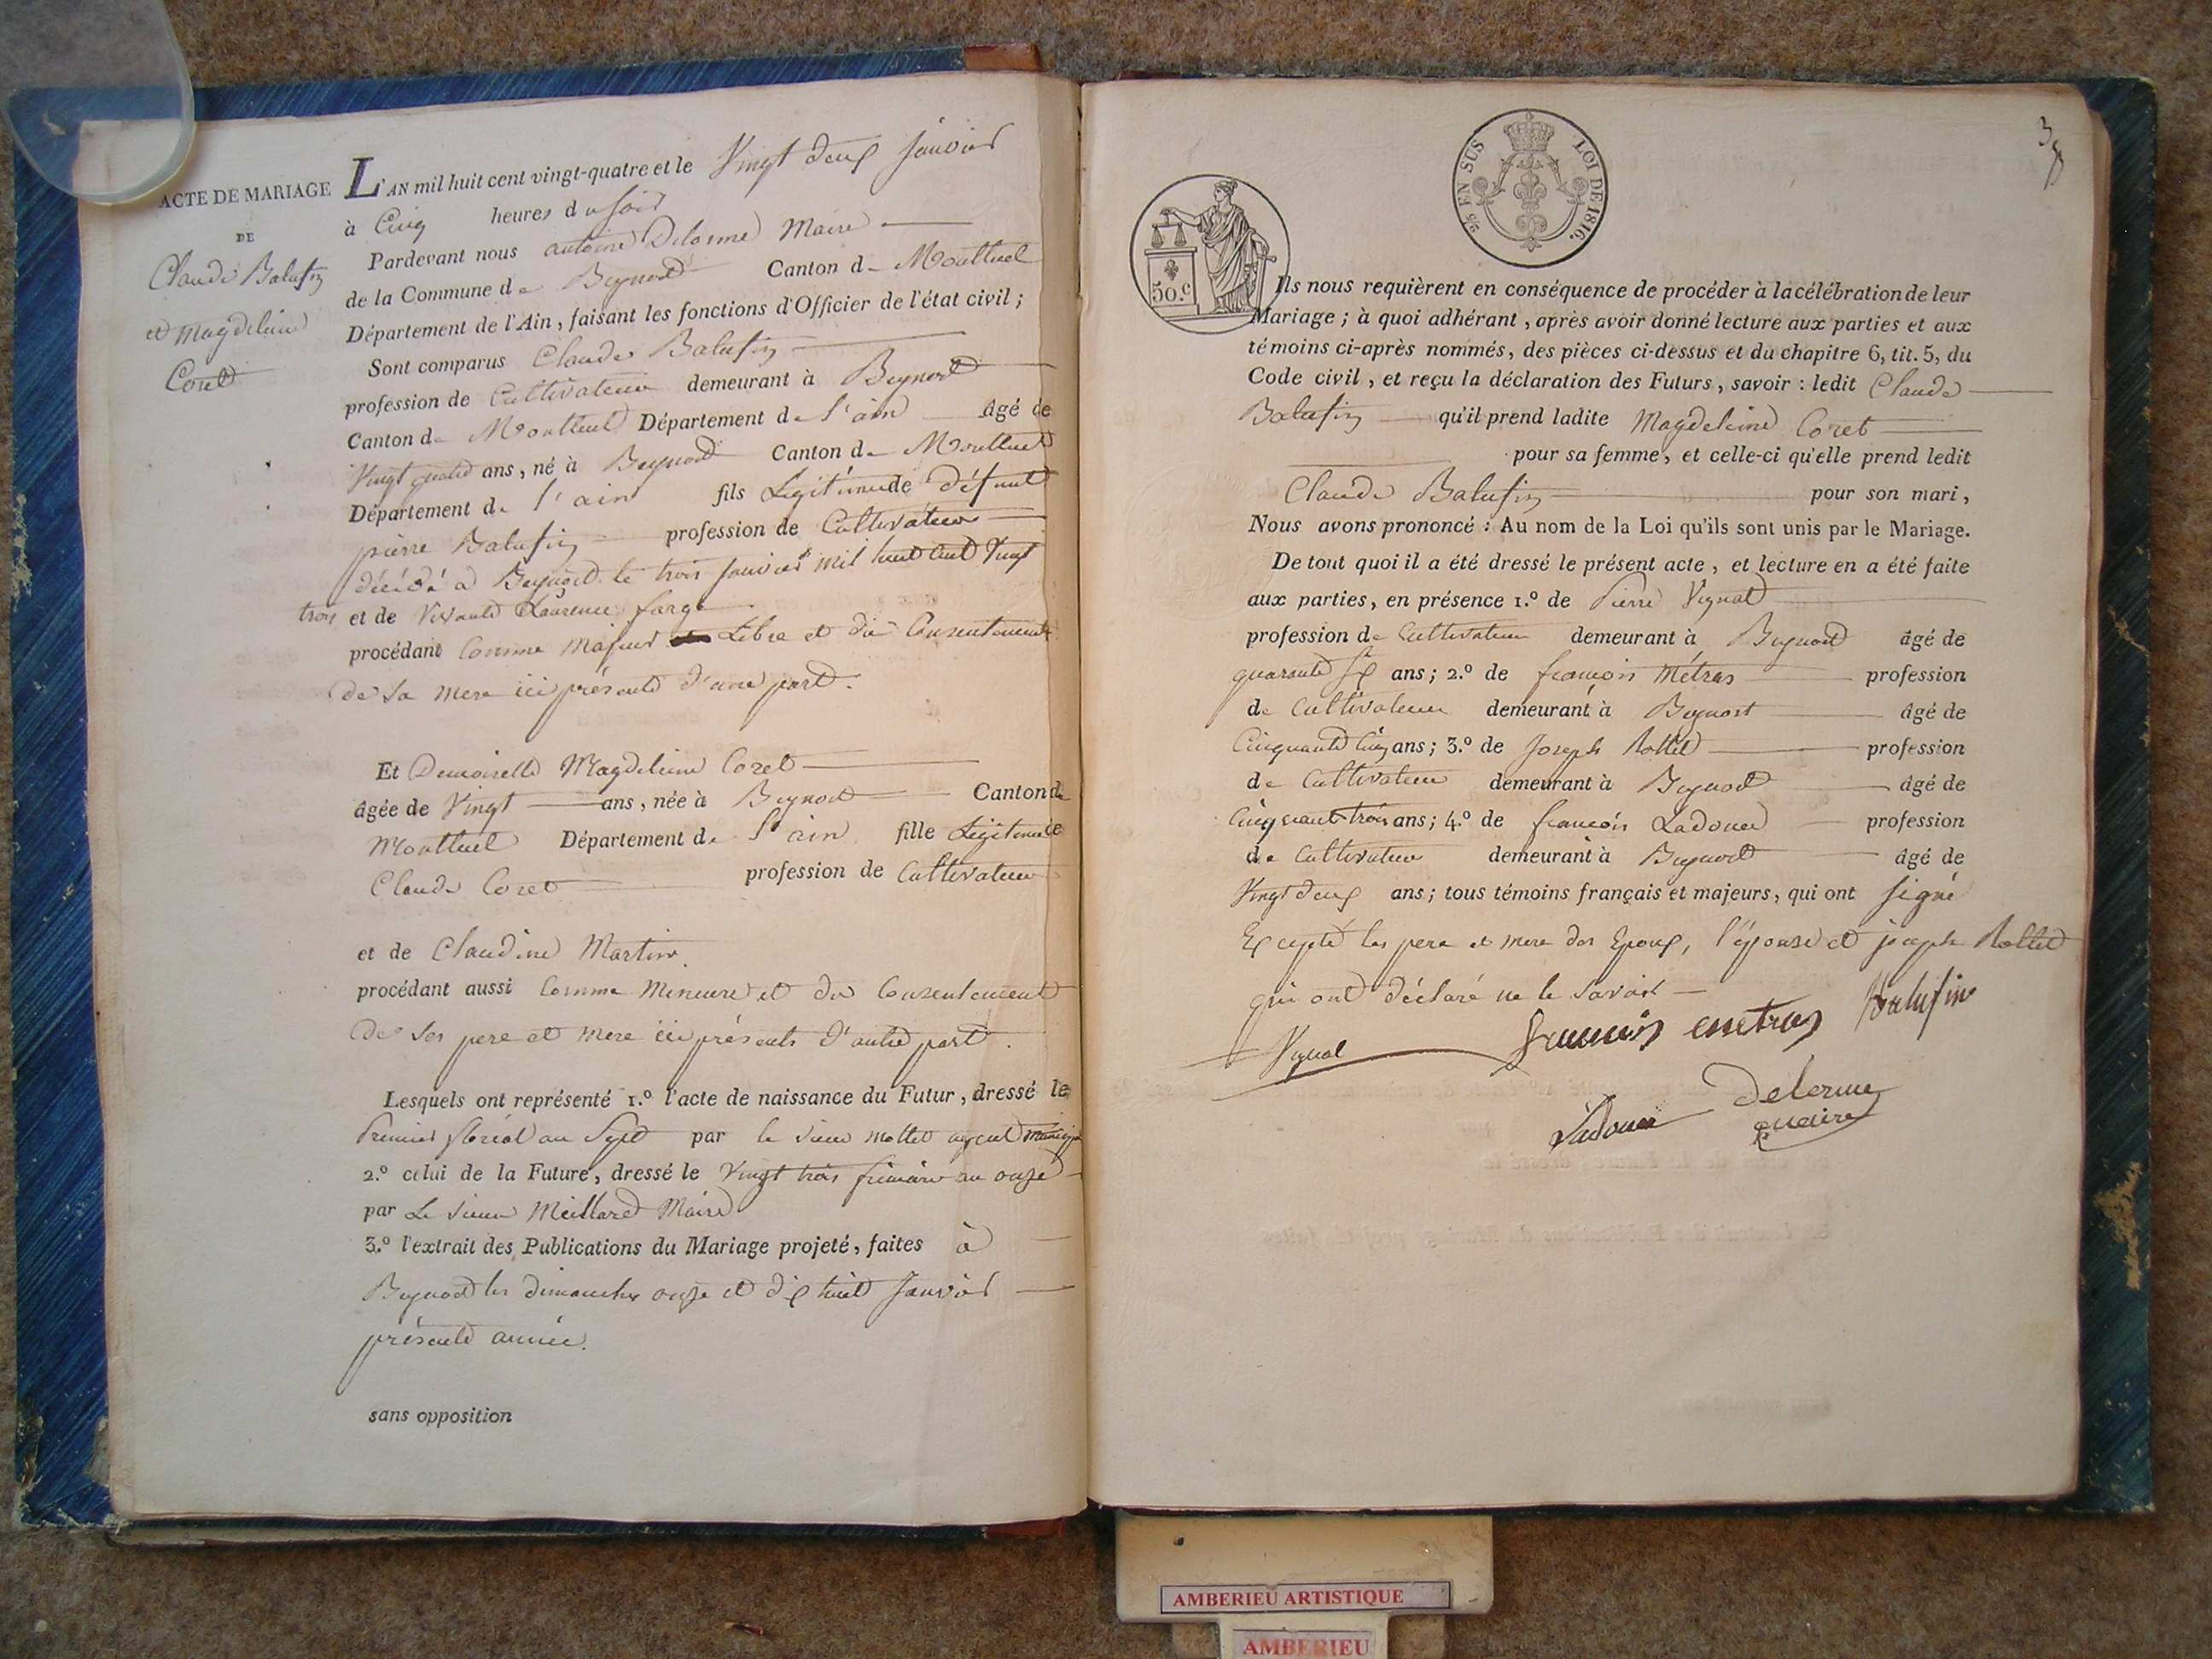 ACTE DE MARIAGE
DE
Claude Balufin
et Magdeleine
Coret
L'AN mil huit cent vingt-quatre et le Vingt deux Janvier
à Cinq heures du soir
Pardevant nous antoine Delorme Maire
de la Commune de Beynost Canton de Montluel
Département de l'Ain, faisant les fonctions d'Officier de l'état civil;
Sont comparus Claude Balufin
profession de Cultivateur demeurant à Beynost
Canton de Montluel Département de l'ain âgé de
Vingt quatre ans, né à Beynost Canton de Montluel
Département de l'ain fils Légitime de défunt
pierre Balufin profession de Cultivateur
décédé à Beynost le trois Janvier mil huit cent Vingt
trois et de Vivante Laurence farge
procédant Comme Majeur Libre et du Consentement
de sa mere ici présente d'une part.
Et Demoiselle Magdeleine Coret
âgée de Vingt ans, née à Beynost Canton de
Montluel Département de l'ain fille Légitime de
Claude Coret profession de Cultivateur
et de Claudine Martin.
procédant aussi Comme Mineure et du Consentement
de ses pere et mere ici présents d'autre part.
Lesquels ont représenté 1.º l'acte de naissance du Futur, dressé le
Premier floréal an Sept par le sieur Mollet agent municipal
2.º celui de la Future, dressé le Vingt trois frimaire an onze
par Le sieur Meillard Maire
3.º l'extrait des Publications du Mariage projeté, faites à
Beynost les dimanches onze et dix huit Janvier
présente année.
sans opposition
3
EN SUS LOI DE 1816.
50.c
Ils nous requièrent en conséquence de procéder à la célébration de leur
Mariage; à quoi adhérant, après avoir donné lecture aux parties et aux
témoins ci-après nommés, des pièces ci-dessus et du chapitre 6, tit. 5, du
Code civil, et reçu la déclaration des Futurs, savoir: ledit Claude
Balufin qu'il prend ladite Magdeleine Coret
pour sa femme, et celle-ci qu'elle prend ledit
Claude Balufin pour son mari,
Nous avons prononcé: Au nom de la Loi qu'ils sont unis par le Mariage.
De tout quoi il a été dressé le présent acte, et lecture en a été faite
aux parties, en présence 1.º de Pierre Vignat
profession de Cultivateur demeurant à Beynost âgé de
quarante Six ans; 2.º de françois Métras profession
de Cultivateur demeurant à Beynost âgé de
Cinquante Cinq ans; 3.º de Joseph Rollet profession
de Cultivateur demeurant à Beynost âgé de
Cinquante trois ans; 4.º de françois Ladouce profession
de Cultivateur demeurant à Beynost âgé de
Vingt deux ans; tous témoins français et majeurs, qui ont Signé
Excepté les pere et mere des Epoux, l'épouse et joseph Rollet
qui ont déclaré ne le Savoir
Balufin
Vignat françois metras
Delorme
Ladouce maire
AMBERIEU ARTISTIQUE
AMBERIEU